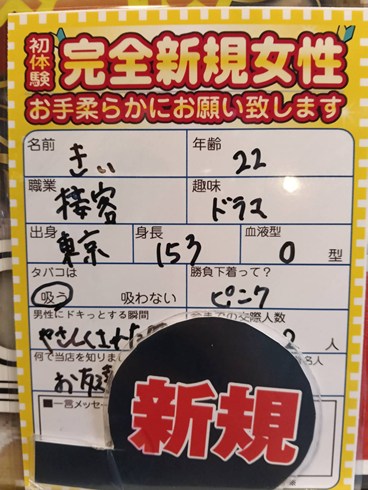 初体験 完全新規女性
お手柔らかにお願い致します
名前 きぃ 年齢 22
職業 接客 趣味 ドラマ
出身 東京 身長 153 血液型 O 型
タバコは 吸う 吸わない 勝負下着って? ピンク
男性にドキっとする瞬間 やさしくされた 今までの交際人数 人
何で当店を知りまし お友達
■一言メッセー
新規